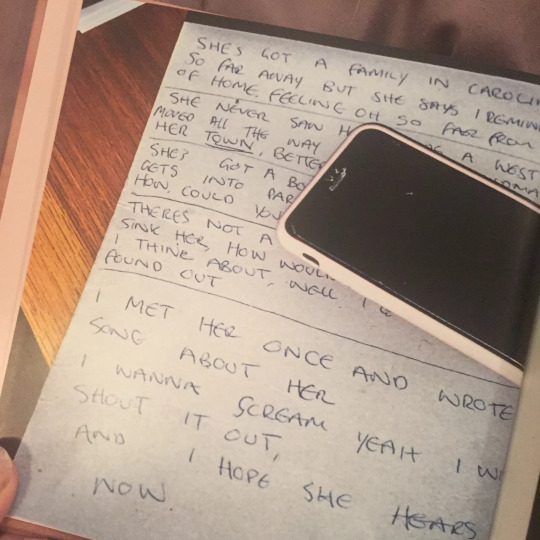 SHES GOT A FAMILY IN CAROLI
SO FAR AWAY BUT SHE SAYS I REMIN
OF HOME FEELING OH SO FAR FROM
SHE NEVER SAW H A WEST
MOVED ALL THE WAY
HER TOWN, BETTE
SHE? GOT A BO
GETS INTO PAR
HOW COULD YOU
THERES NOT A
SINK HER, HOW WOUL
I THINK ABOUT, WELL I
FOUND OUT
I MET HER ONCE AND WROTE
SONG ABOUT HER
I WANNA SCREAM YEAH I W
SHOUT IT OUT,
AND I HOPE SHE HEARS
NOW.